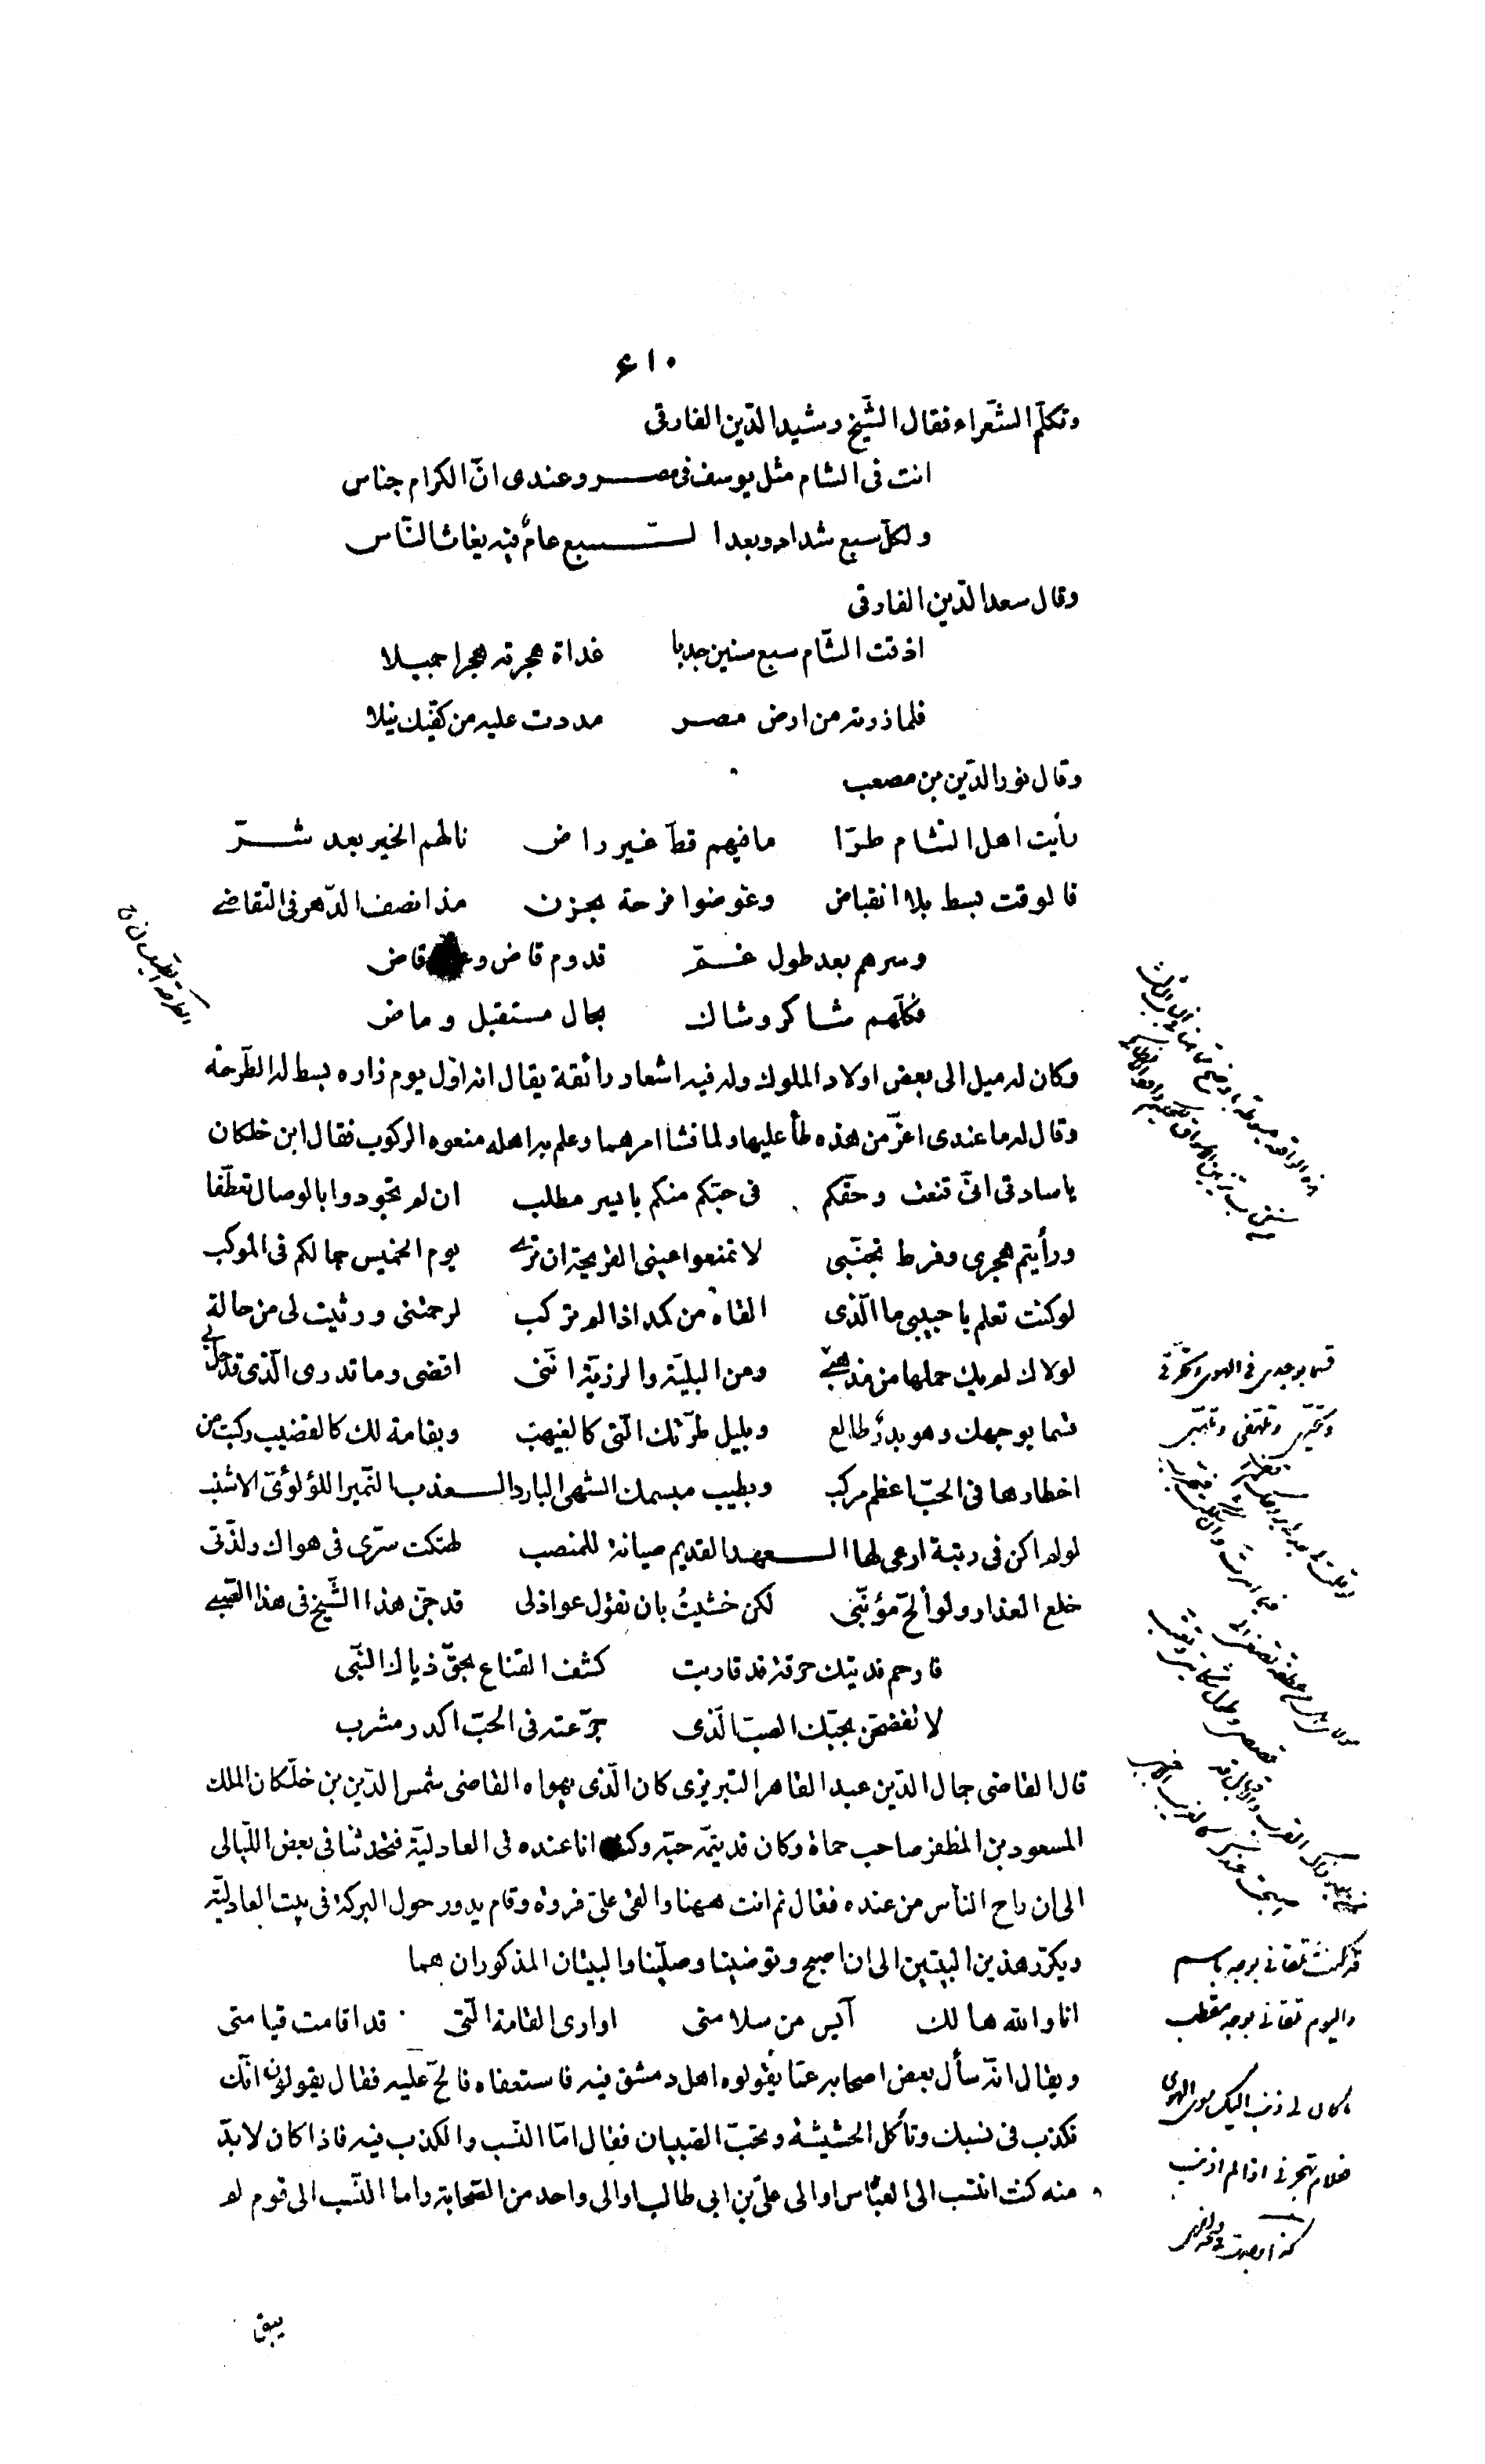 ٦١٠
وتكلّم الشّعراء فقال الشّيخ رشيد الدّين الفارقى
انت فى الشام مثل يوسف فى مصر وعندى انّ الكرام جناس
ولكلّ سبع شداد وبعد السّبع عامٌ فيه يغاث النّاس
وقال سعد الدّين الفارقى
اذقت الشّام سبع سنين جدبا غداة هجرته هجرا جميلا
فلما زرته من ارض مصر مددت عليه من كفّيك نيلا
وقال نور الدّين بن مصعب
رأيت اهل الشام طرّا ما فيهم قطّ غير راض نالهم الخير بعد شرّ
فالوقت بسط بلا انقباض وعوضوا فرحة بحزن مذ انصف الدّهر فى التّقاضے
وسرهم بعد طول غمّ قدوم قاض و قاض
فكلّهم شاكر وشاك بحال مستقبل وماض
وكان له ميل الى بعض اولاد الملوك وله فيه اشعار رائقة يقال انه اوّل يوم زاره بسط له الطّرحة
وقال له ما عندى اعزّ من هذه طأ عليها ولما فشا امرهما وعلم به اهله منعوه الركوب فقال ابن خلكان
يا سادتى انّى قنعت وحقّكم فى حبّكم منكم بايسر مطلب ان لم تجودوا بالوصال تعطّفا
ورأيتم هجرى وفرط تجنّبى لا تمنعوا عينى القريحة ان ترے يوم الخميس جمالكم فى الموكب
لو كنت تعلم يا حبيبى ما الّذى القاه من كمد اذا لم تركب لرحمتنى ورثيت لى من حالة
لولاك لم يك حملها من مذهبے ومن البليّة والرزيّة انّنى اقضى وما تدرى الّذى قد حلّ بے
قسما بوجهك وهو بدرٌ طالع وبليل طرّتك الّتى كالغيهب وبقامة لك كالقضيب ركبت من
اخطارها فى الحبّ اعظم مركب وبطيب مبسمك الشهى البارد العذب النّمير اللؤلؤىّ الاشنب
لو لم اكن فى رتبة ارعى لها العهد القديم صيانة للمنصب لهتكت سترى فى هواك ولذّ لى
خلع العذار ولو ألحّ مؤنّبى لكن خشيتُ بان تقول عواذلى قد جنّ هذا الشّيخ فى هذا الصّبے
فارحم فديتك حرقة قد قاربت كشف القناع بحقّ ذياك النّبى
لا تفضحن بحبّك الصبّ الّذى جرّعته فى الحبّ اكدر مشرب
قال القاضى جمال الدّين عبد القاهر التبريزى كان الّذى يهواه القاضى شمس الدّين بن خلّكان الملك
المسعود بن المظفر صاحب حماة وكان قد يتّمه حبّه وكنت انا عنده فى العادليّة فتحدثنا فى بعض اللّيالى
الى ان راح النّاس من عنده فقال نم انت ههنا والقى علىّ فروة وقام يدور حول البركة فى بيت العادليّة
ويكرّر هذين البيتين الى ان اصبح وتوضينا وصلّينا والبيتان المذكوران هما
انا والله هالك آيس من سلامتى او ارى القامة الّتى قد اقامت قيامتى
ويقال انّه سأل بعض اصحابه عمّا يقولوه اهل دمشق فيه فاستعفاه فالحّ عليه فقال يقولون انّك
تكذب فى نسبك وتأكل الحشيشة وتحبّ الصّبيان فقال امّا النّسب والكذب فيه فاذا كان لا بدّ
منه كنت انتسب الى العبّاس او الى علىّ بن ابى طالب او الى واحد من الصّحابة واما النّسب الى قوم لم
يبق
قسما بوجدى فى الهوى وتحرّقى
وتحيّرى وتلهّفى وتلهّبى
قد كنت تلقانى بوجه باسم
واليوم تلقانى بوجه مقطب
ما كان لى ذنب اليك سوى الهوى
فعلام تهجرنى اذا لم اذنب